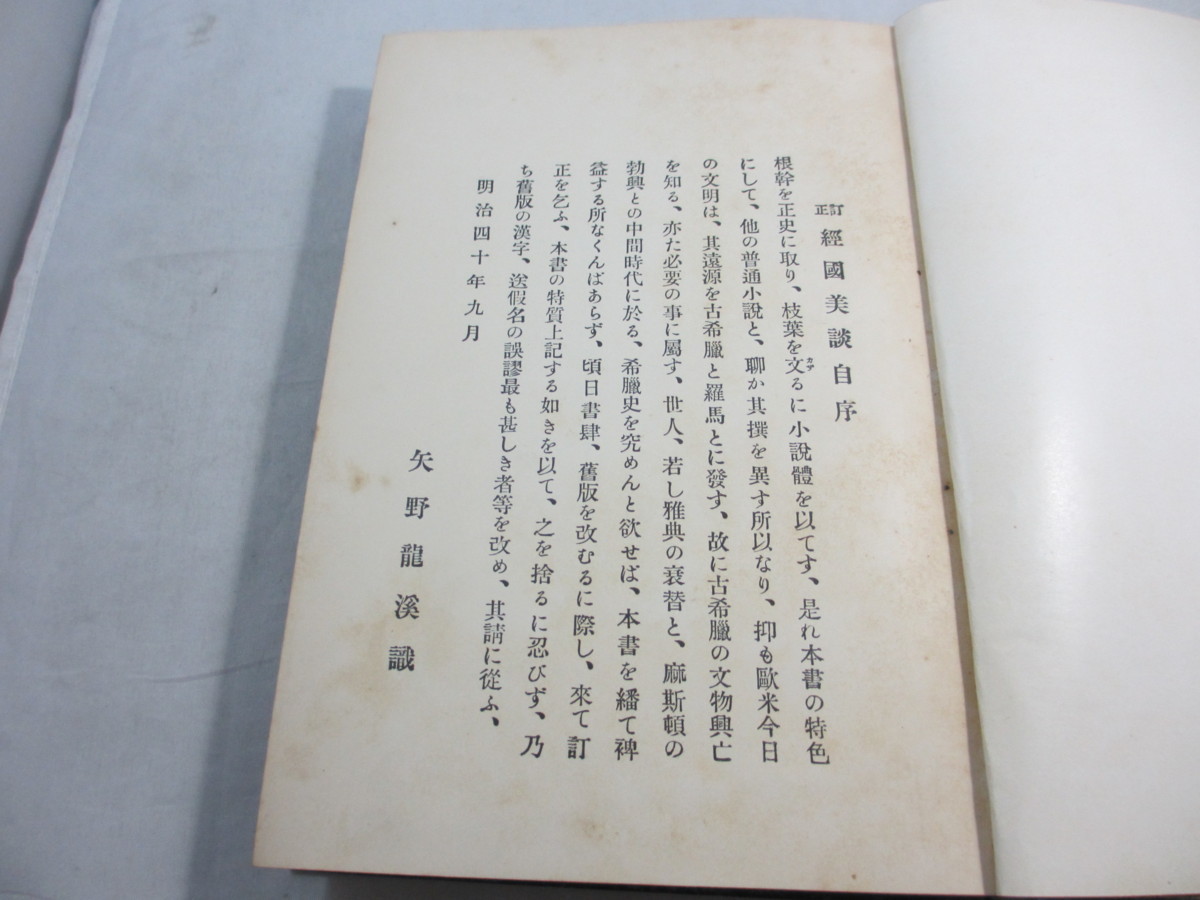 訂正 經國美談自序
根幹を正史に取り、枝葉を文るに小說體を以てす、是れ本書の特色
にして、他の普通小說と、聊か其撰を異す所以なり、抑も歐米今日
の文明は、其遠源を古希臘と羅馬とに發す、故に古希臘の文物興亡
を知る、亦た必要の事に屬す、世人、若し雅典の衰替と、麻斯頓の
勃興との中間時代に於る、希臘史を究めんと欲せば、本書を繙て裨
益する所なくんばあらず、頃日書肆、舊版を改むるに際し、來て訂
正を乞ふ、本書の特質上記する如きを以て、之を捨るに忍びず、乃
ち舊版の漢字、送假名の誤謬最も甚しき者等を改め、其請に從ふ、
明治四十年九月
矢野龍溪識